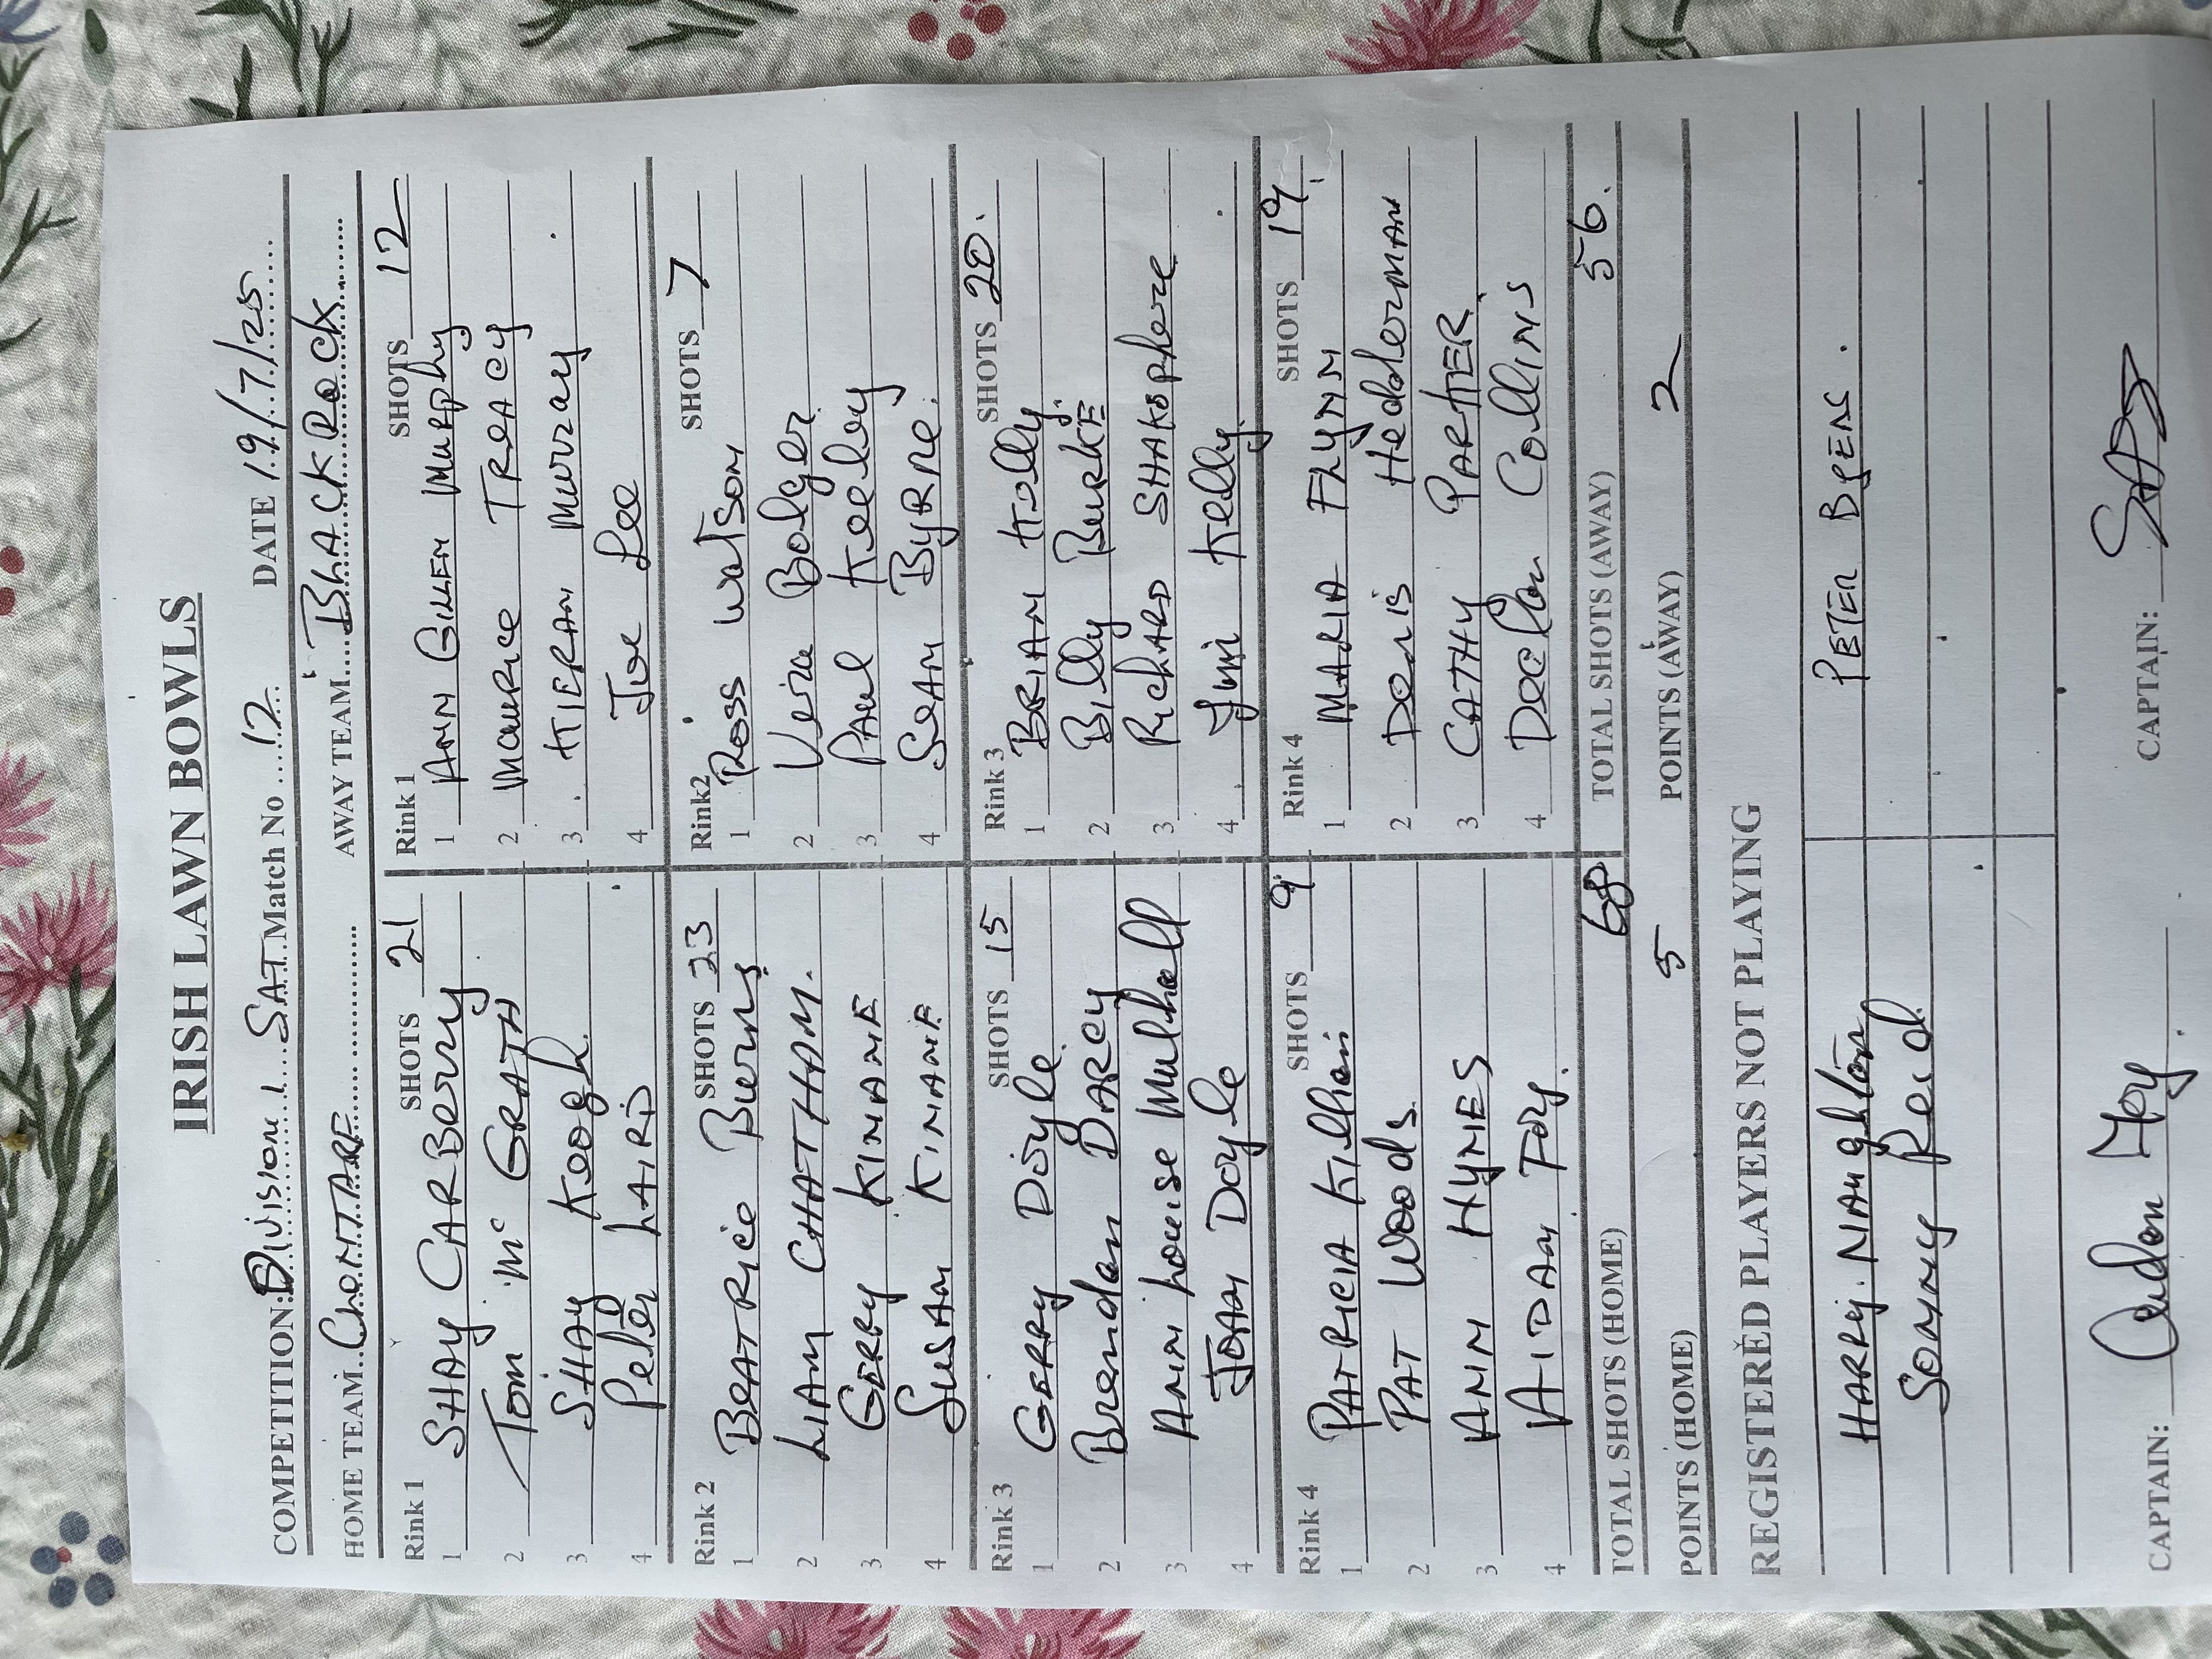 IRISH LAWN BOWLS
COMPETITION: Division 1 SAT Match No 12 DATE 19/7/25
HOME TEAM ChONTARF AWAY TEAM BhACKRocK
Rink 1 SHOTS 21 Rink 1 SHOTS 12
1 SHAY CARBerry 1 ANN GILLEN Murphy
2 Tom Mc GRATH 2 Maurice TReACY
3 SHAY Keogh 3 KIERAN Murray
4 Peter LAIRD 4 Joe Lee
Rink 2 SHOTS 23 Rink2 SHOTS 7
1 BeATRice Burns 1 Ross WatSON
2 LIAM CHATHAM. 2 Vera Bolger
3 GERRY KINANE 3 PAul Keeley
4 SUSAN KINANE 4 SeAN ByRNe.
Rink 3 SHOTS 15 Rink 3 SHOTS 20.
1 GERRY Doyle 1 BRIAN Kelly
2 Brendan DARCY 2 Billy BurKE
3 ANN Louise Mulhall 3 RichARD SHAKSPheRe
4 JOAN Doyle 4 Jim Kelly
Rink 4 SHOTS 9 Rink 4 SHOTS 19
1 PATRICIA Killian 1 MARIA FLYNN
2 PAT Woods 2 Denis HedderMAN
3 ANN HYNES 3 CATHY PARKER
4 AIDAN Foy. 4 Declan CollINS
TOTAL SHOTS (HOME) 68 TOTAL SHOTS (AWAY) 56.
POINTS (HOME) 5 POINTS (AWAY) 2
REGISTERED PLAYERS NOT PLAYING
HARRY NAughton PETER
SONNY Reid
CAPTAIN: Aidan Foy CAPTAIN: